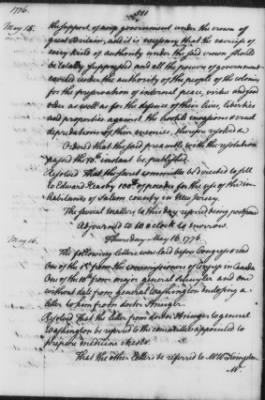 1776.
May 15.
the support of any government under the crown of
great Britain, and it is necessary that the exercise of
every kind of authority under the said crown should
be totally suppressed and all the powers of government
exerted under the authority of the people of the colonies
for the preservation of internal peace, virtue and good
order as well as for the defence of their lives, liberties
and properties against the hostile invasions & cruel
depredations of their enemies, therefore resolved &c
Ordered That the said preamble with the resolution
passed the 10th instant be published.
Resolved That the secret committee be directed to sell
to Edward 100 lb of powder for the use of the in-
habitants of Salem county in New Jersey.
The several matters to this day referred being postponed
Adjourned to 10 o clock to morrow.
May 16.
Thursday May 16. 1776.
The following letters were laid before Congress viz
One of the 1st from the commissioners of Congress in Canada
One of the 10th from major general Schuyler and one
without date from general Washington enclosing a
letter to him from doctor
Resolved That the letter from doctor to general
Washington be referred to the committee appointed to
prepare medicine chests.
That the other letters be referred to Mr W Livingston
Mr